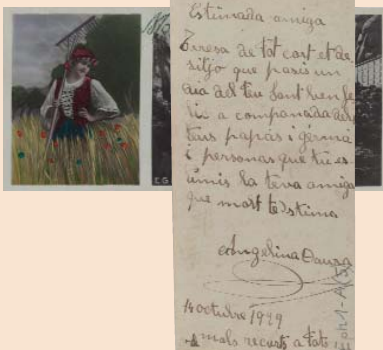 Estimada amiga
Teresa de tot cort et de
sitjo que pasis un
dia del teu Sant bien fe
lis a companada dels
teus papás i germá
i personas que tú es
timis la teva amiga
que molt te stima
Angelina
14 octubre 1919
recorts a tots